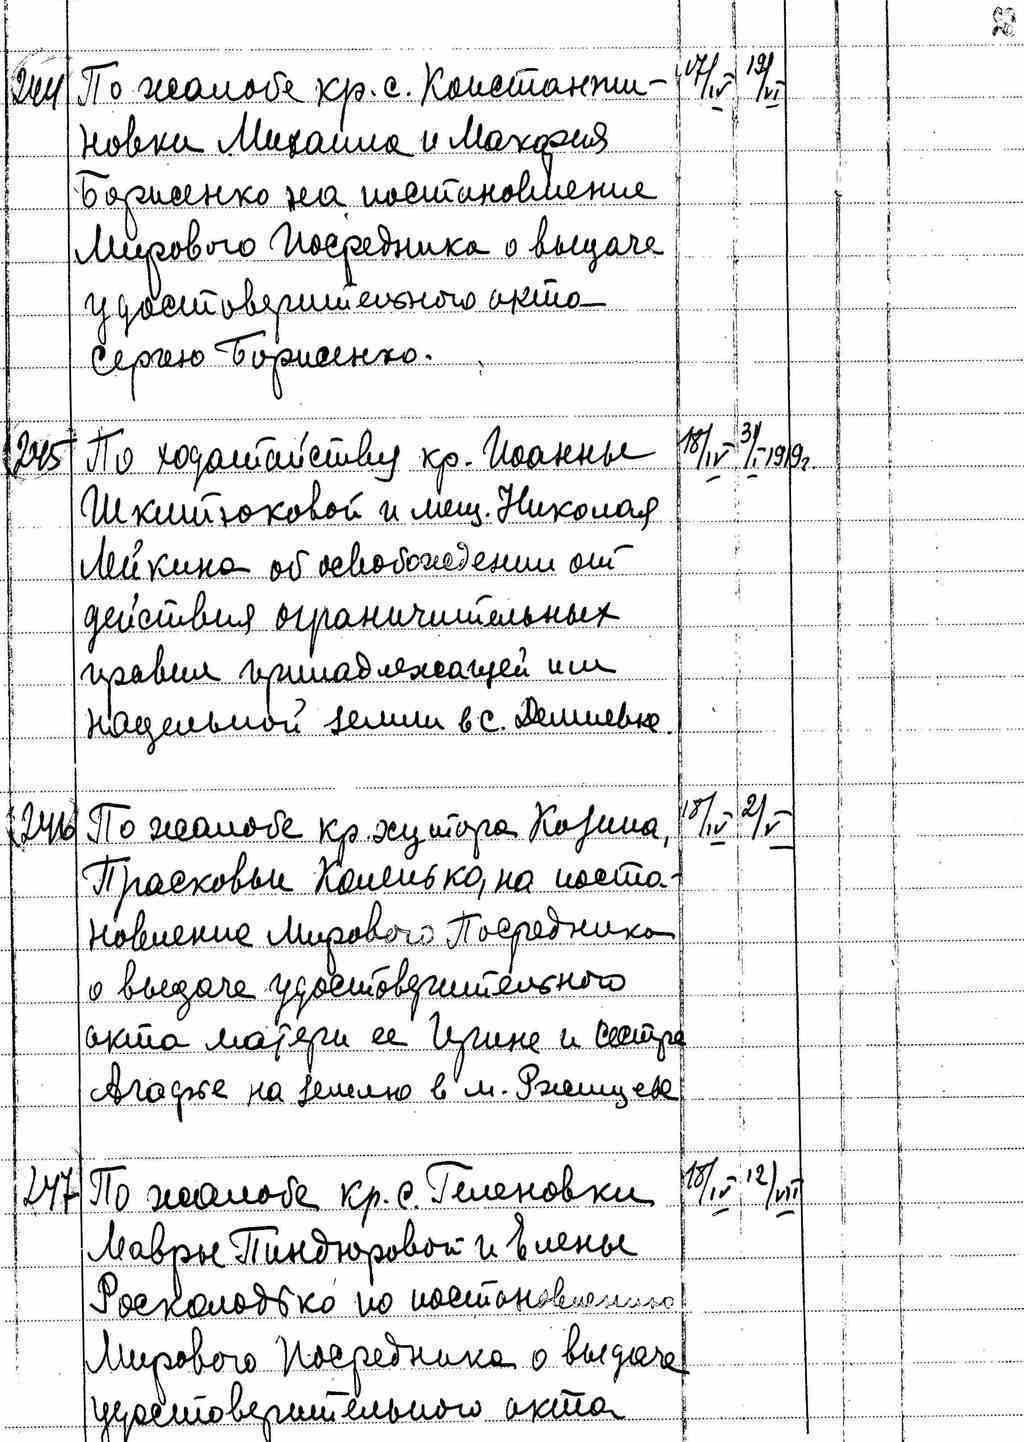 244 По жалобе кр. с. Константи- 17/IV 19/VI
новки Михаила и Макария
Борисенко на постановление
Мирового Посредника о выдаче
удостоверительного акта
Сергею Борисенко.
245 По ходатайству кр. Иоанны 18/IV 31/I 1919 г.
и мещ. Николая
Лейкина об освобождении от
действия ограничительных
правил принадлежащей им
надельной земли в с. Демиевке.
246 По жалобе кр. хутора Козина, 18/IV 2/V
Прасковьи Копенько, на поста-
новление Мирового Посредника
о выдаче удостоверительного
акта матери ее Ирине и сестре
Агафье на землю в м. Ржищеве
247 По жалобе кр. с. Геленовки 18/IV 12/VII
Мавры Пиндюровой и Елены
по постановлению
Мирового Посредника о выдаче
удостоверительного акта